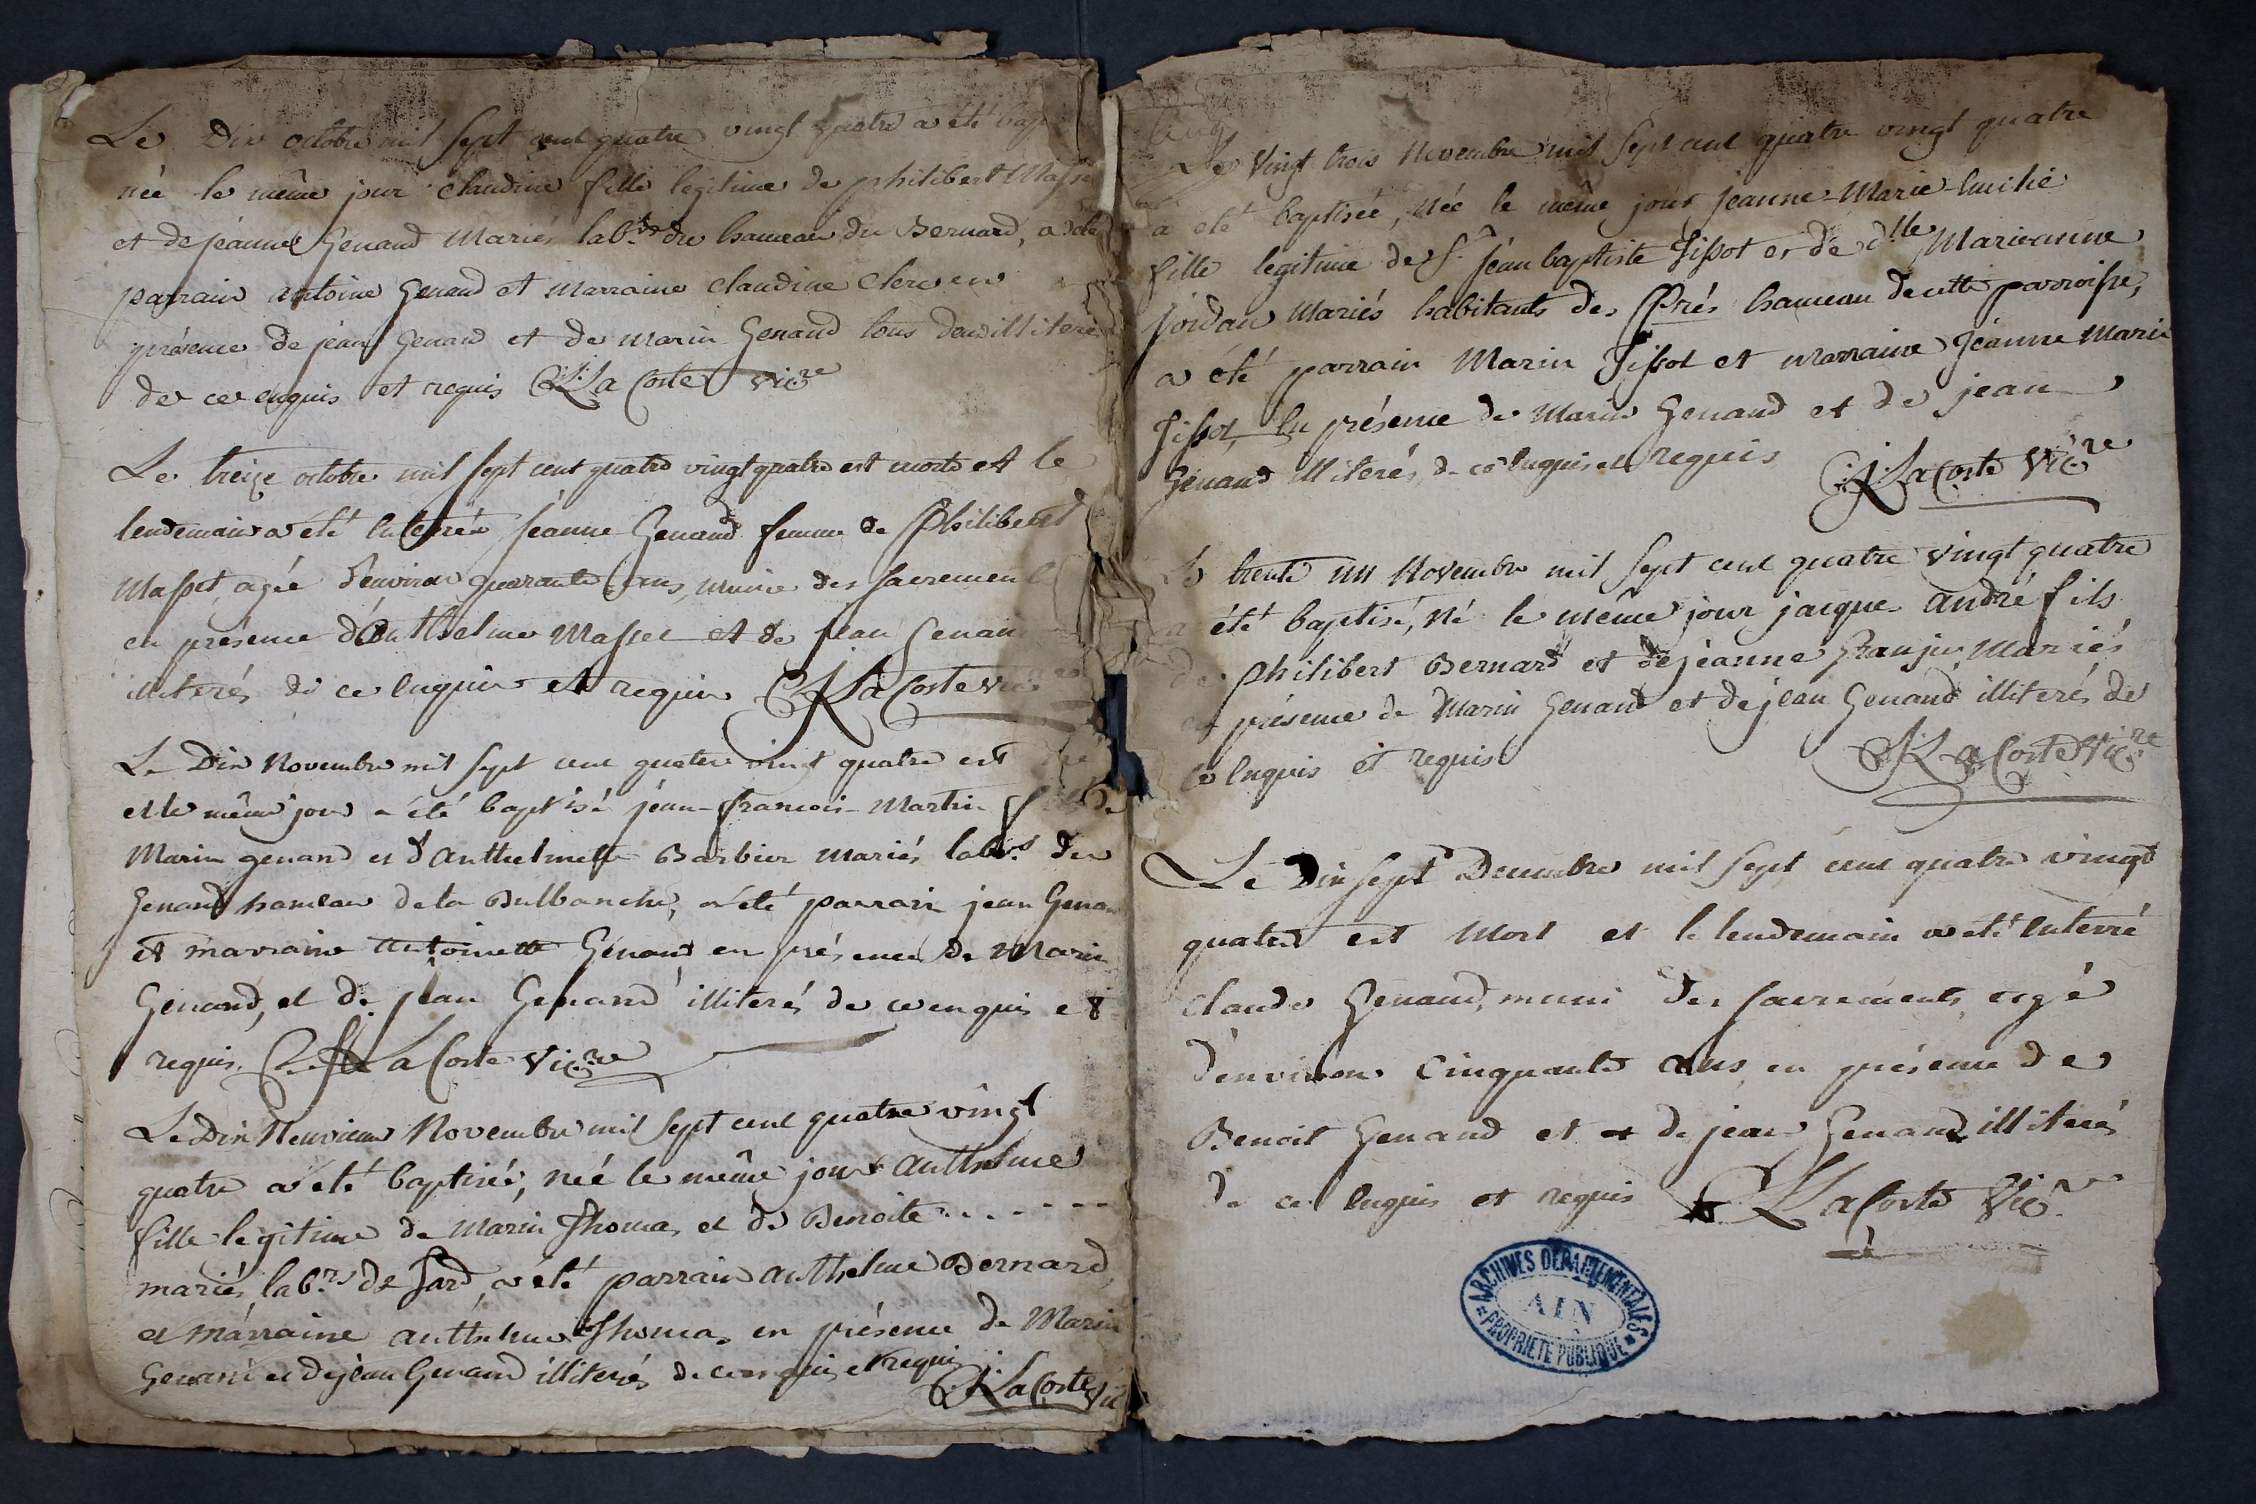 Le Dix octobre mil sept cent quatre vingt quatre a été
née le même jour claudine fille legitime de philibert Masse
et de jeanne Genand Mariés lab.rs du hameau du Bernard, a été
parrain antoine Genand et marraine claudine Clerc en
présence de jean Genand et de marin Genand tous deux illiterés
de ce enquis et requis La Coste vic.re
Le treize octobre mil sept cent quatre vingt quatre est morte et le
lendemain a été Enterrée jeanne Genand femme de Philibert
Masset, agée d'environ quarante ans, munie des sacremen
en présence d'Anthelme Masset et de jean Genan
illiterés de ce Enquis et requis La Coste vic
Le Dix Novembre mil sept cent quatre vingt quatre est
et le même jour a été baptisé jean-francois-Martin fils de
Marin genand et d'anthelmette Barbier mariés lab.rs des
Genand hameau de la Bulbanche, a été parrain jean Genan
et marraine antoinette Genand en présence de Marin
Genand, et de jean Genand illiterés de ce enquis et
requis. La Coste Vic.re
Le Dix Neuvieme Novembre mil sept cent quatre vingt
quatre a été baptisée, née le même jour anthelme
fille legitime de Marin Thomas et de Benoite . . . . . .
mariés lab.rs de a été parrain anthelme Bernard
et marraine anthelme Thomas en présence de Marin
Genand et de jean Genand illiterés de ce enquis et requis
La Coste Vic
Le Vingt trois Novembre mil sept cent quatre vingt quatre
a été baptisée, Née le même jour jeanne-Marie-Emilie
fille legitime de S.r jean baptiste Tissot et de d.lle Marieanne
jordan Mariés habitants des Prés hameau de cette parroisse,
a été parrain Marin Tissot et marraine jeanne Marie
Tissot, En présence de Marin Genand et de jean
Genand illiterés, de ce Enquis et requis
La Coste Vic.re
Le trente un Novembre mil sept cent quatre vingt quatre
a été baptisé, Né le même jour jacque andré fils
de philibert Bernard et de jeanne Granjus Mariés
en présence de Marin Genand et de jean Genand illiterés de
ce Enquis et requis
La Coste Vic.re
Le Dix sept Decembre mil sept cent quatre vingt
quatre est Mort et le lendemain a été Enterré
claude Genand, muni des sacrements, agé
d'environ Cinquante ans en présence de
Benoit Genand et et de jean Genand illiterés
de ce Enquis et requis La Coste Vic.re
ARCHIVES DÉPARTEMENTALES
AIN
PROPRIETE PUBLIQUE